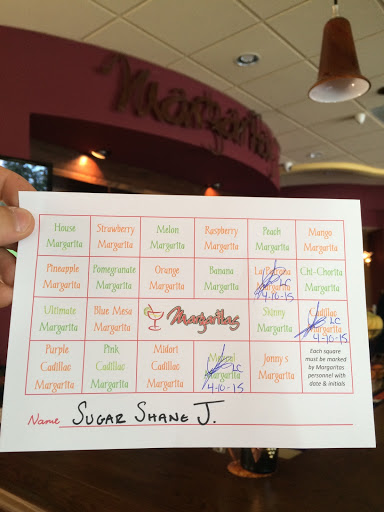 Margaritas
House Margarita
Strawberry Margarita
Melon Margarita
Raspberry Margarita
Peach Margarita
Mango Margarita
Pineapple Margarita
Pomegranate Margarita
Orange Margarita
Banana Margarita
La Patrona Margarita
LC
4-10-15
Chi-Chorita Margarita
Ultimate Margarita
Blue Mesa Margarita
Margaritas
Skinny Margarita
Cadillac Margarita
LC
4-10-15
Purple Cadillac Margarita
Pink Cadillac Margarita
Midori Cadillac Margarita
Margarita
LC
4-10-15
Jonny's Margarita
Each square
must be marked
by Margaritas
personnel with
date & initials
Name SUGAR SHANE J.